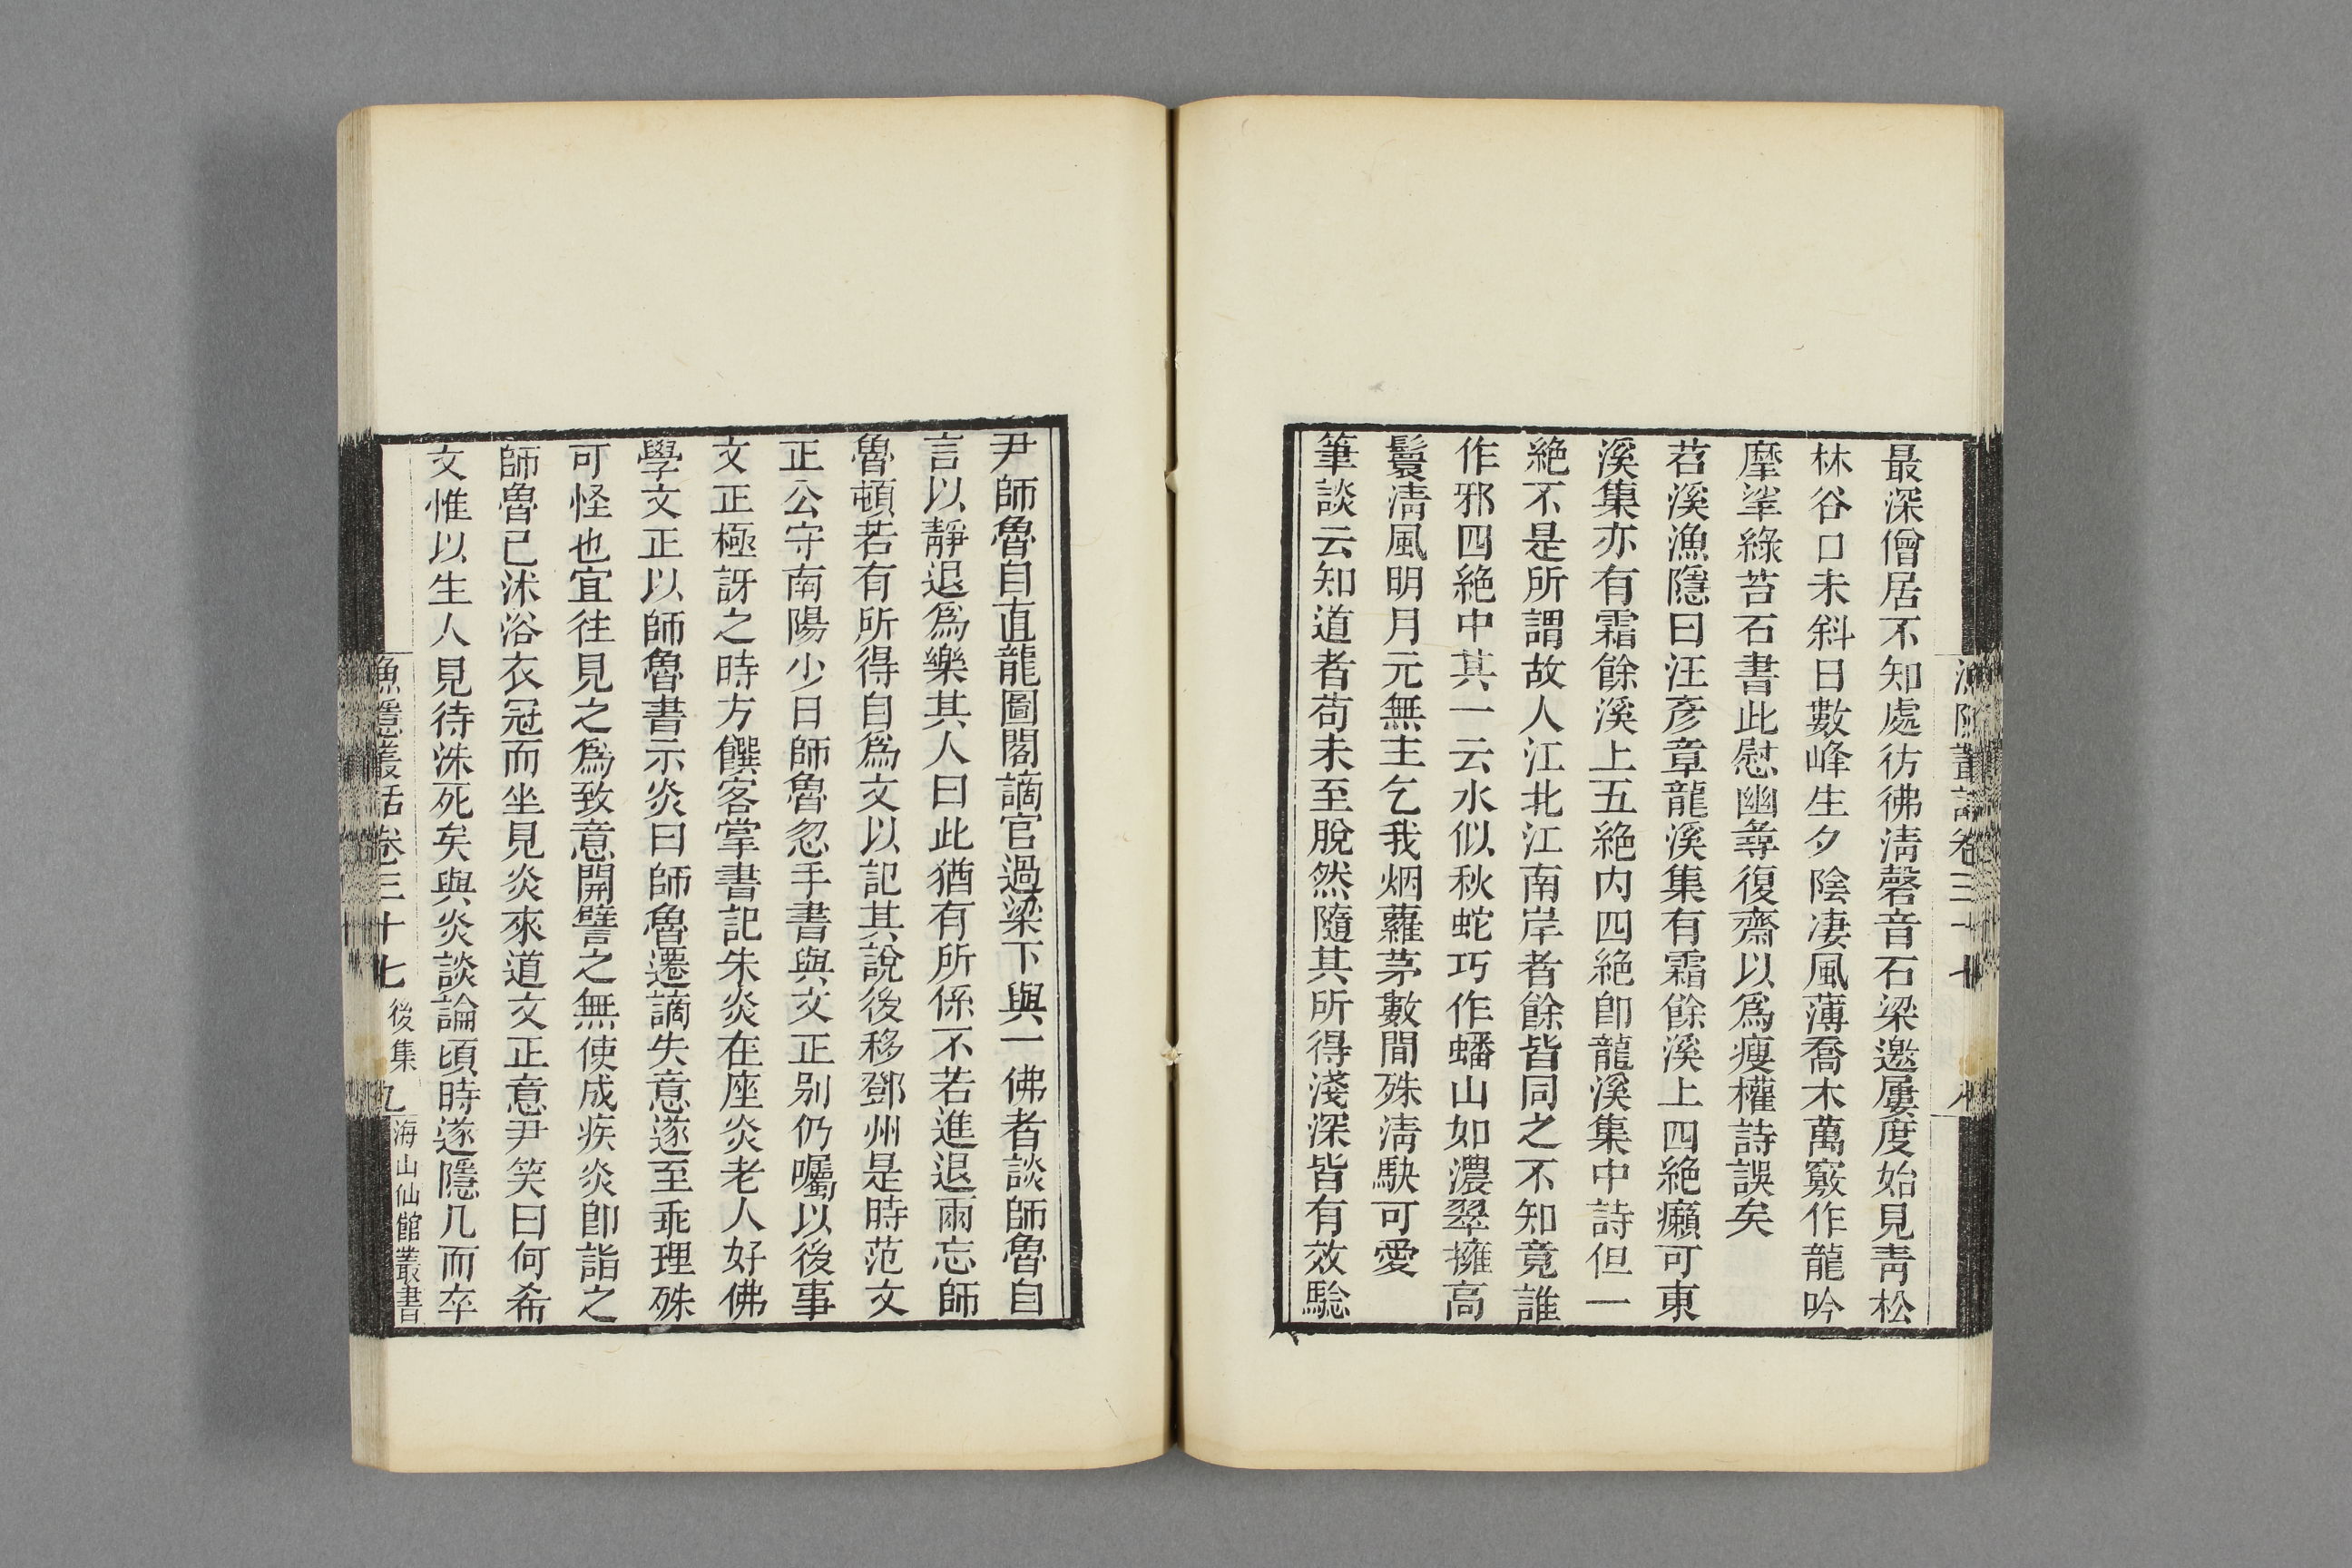 最深僧居不知處彷彿淸磬音石梁邀屢度始見靑松
林谷口未斜日數峰生夕陰凄風薄喬木萬竅作龍吟
摩挲綠苔石書此慰幽尋復齋以爲瘦權詩誤矣
苕溪漁隱曰汪彥章龍溪集有霜餘溪上四絕癩可東
溪集亦有霜餘溪上五絕内四絕卽龍溪集中詩但一
絕不是所謂故人江北江南岸者餘皆同之不知竟誰
作邪四絕中其一云水似秋蛇巧作蟠山如濃翠擁高
鬟淸風明月元無主乞我烟蘿茅數間殊淸駃可愛
筆談云知道者苟未至脫然隨其所得淺深皆有效騐
尹師魯自直龍圖閣謫官過梁下與一佛者談師魯自
言以靜退爲樂其人曰此猶有所係不若進退兩忘師
魯頓若有所得自爲文以記其說後移鄧州是時范文
正公守南陽少日師魯忽手書與文正别仍囑以後事
文正極訝之時方饌客掌書記朱炎在座炎老人好佛
學文正以師魯書示炎曰師魯遷謫失意遂至乖理殊
可怪也宜往見之爲致意開譬之無使成疾炎卽詣之
師魯已沐浴衣冠而坐見炎來道文正意尹笑曰何希
文惟以生人見待洙死矣與炎談論頃時遂隱几而卒
漁隱叢話卷三十七 後集 九 海山仙館叢書